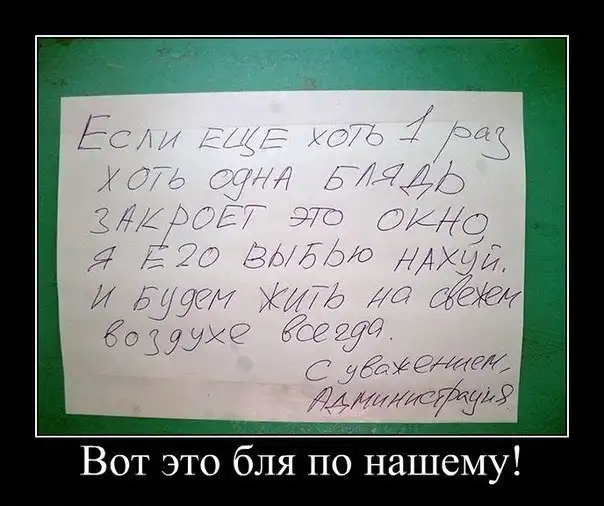 Если ЕЩЕ хоть 1 раз
хоть одна БЛЯДЬ
ЗАКРОЕТ это окно,
я Его ВЫБЬЮ НАХУЙ.
И Будем Жить на свежем
воздухе всегда.
С уважением,
Администрация
Вот это бля по нашему!